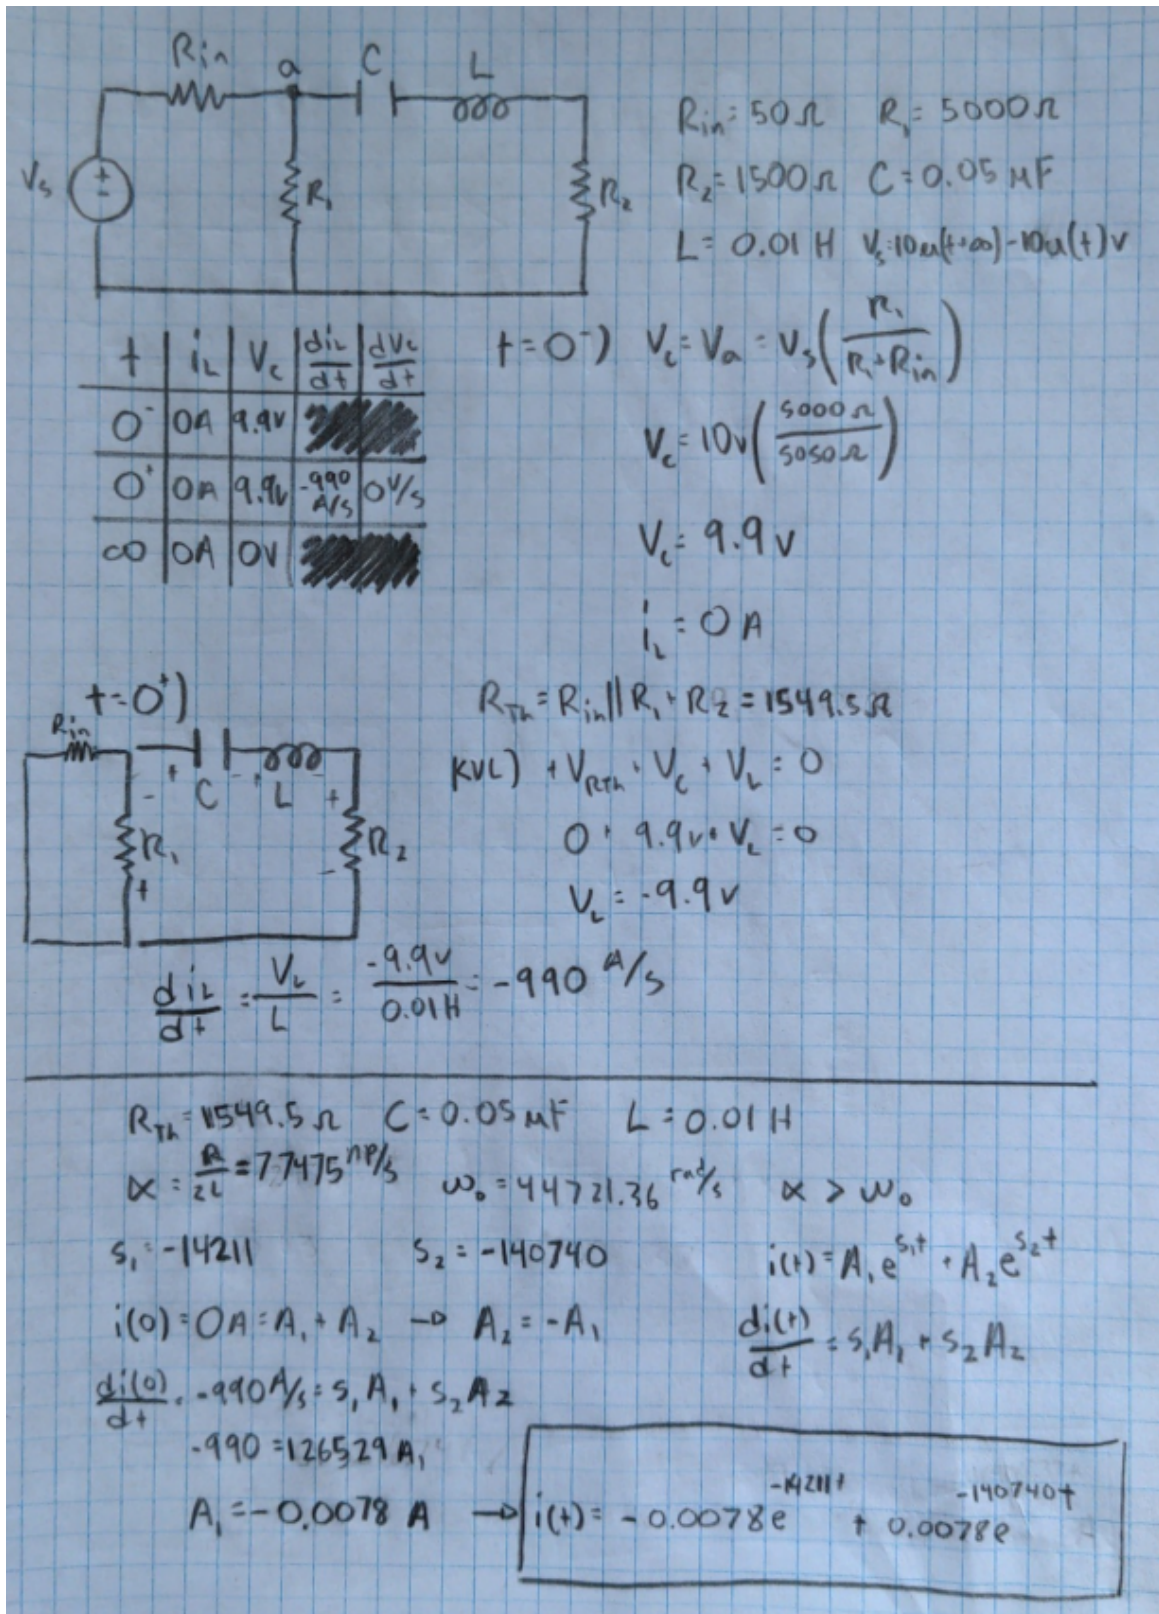 Rin a C L
Vs R₁ R₂
Rin = 50Ω R₁ = 5000Ω
R₂ = 1500Ω C = 0.05 μF
L = 0.01 H Vs = 10u(t+∞) - 10u(t) v
t iL Vc diL/dt dVc/dt
0⁻ 0A 9.9v
0⁺ 0A 9.9v -990 A/s 0 V/s
∞ 0A 0V
t=0⁻) Vc = Va = Vs(R₁/(R₁+Rin))
Vc = 10v(5000Ω/5050Ω)
Vc = 9.9v
iL = 0 A
t=0⁺)
Rin
+ C - + L - +
- R₁ + R₂ -
RTh = Rin||R₁ + R2 = 1549.5Ω
KVL) + VRTh + Vc + VL = 0
0 + 9.9v + VL = 0
VL = -9.9v
diL/dt = VL/L = -9.9v/0.01H = -990 A/s
RTh = 1549.5Ω C = 0.05 μF L = 0.01 H
α = R/2L = 77475 np/s ω₀ = 44721.36 rad/s α > ω₀
s₁ = -14211 s₂ = -140740 i(t) = A₁e^s₁t + A₂e^s₂t
i(0) = 0A = A₁ + A₂ → A₂ = -A₁ di(t)/dt = s₁A₁ + s₂A₂
di(0)/dt = -990A/s = s₁A₁ + s₂A2
-990 = 126529 A₁
A₁ = -0.0078 A → i(t) = -0.0078e^-14211t + 0.0078e^-140740t